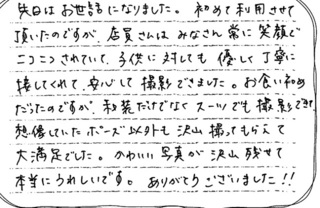 先日はお世話になりました。初めて利用させて
頂いたのですが、店員さんはみなさん常に笑顔で
ニコニコされていて、子供に対しても優しく丁寧に
接してくれて、安心して撮影できました。お食い初め
だったのですが、和装だけでなくスーツでも撮影できて
想像していたポーズ以外も沢山撮ってもらえて
大満足でした。かわいい写真が沢山残せて
本当にうれしいです。ありがとうございました!!